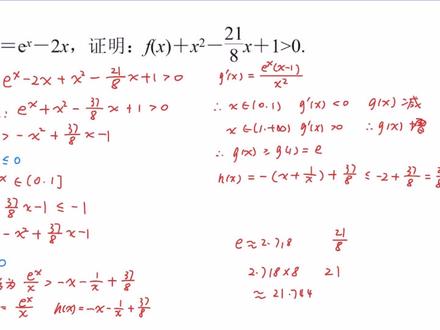 =eˣ－2x，证明：f(x)＋x²－21/8x＋1>0.
eˣ-2x+x²-21/8x+1>0
: eˣ+x²-37/8x+1>0
> -x²+37/8x-1
≤0
x∈(0.1]
37/8x-1≤-1
-x²+37/8x-1
0
为 eˣ/x>-x-1/x+37/8
= eˣ/x h(x)=-x-1/x+37/8
g'(x)=eˣ(x-1)/x²
∴ x∈(0.1) g'(x)<0 g(x)减
x∈(1.+∞) g'(x)>0 ∴ g(x)增
∴ g(x)≥g(1)=e
h(x)=-(x+1/x)+37/8≤-2+37/8=
e≈2.718 21/8
2.718×8 21
≈21.744